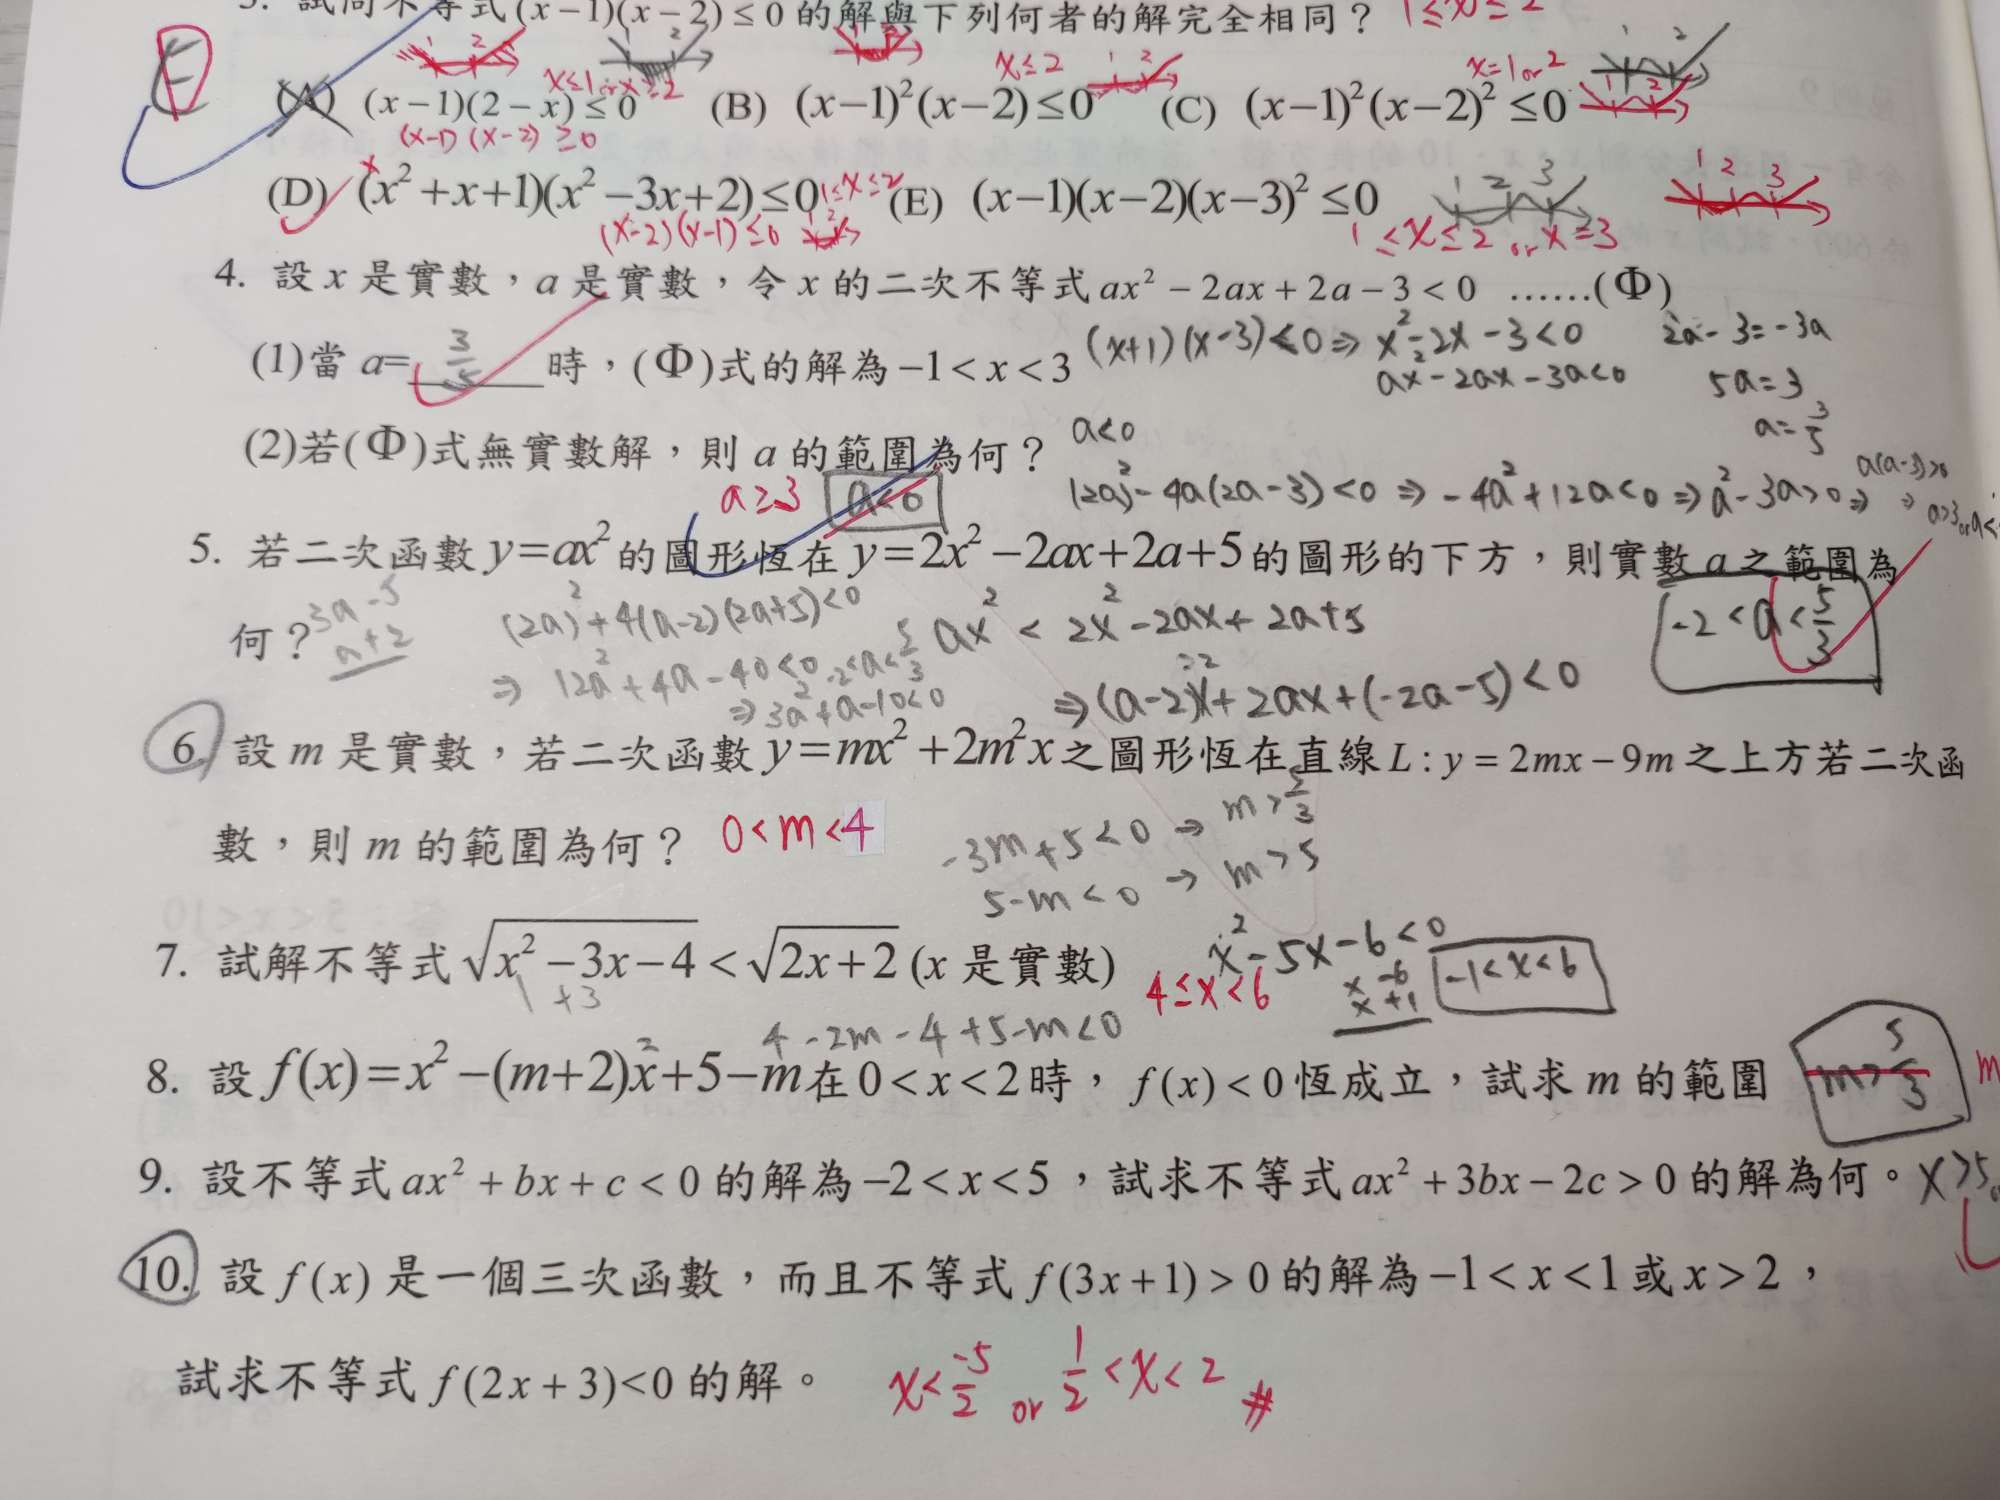 3. 試問不等式(x−1)(x−2)≤0的解與下列何者的解完全相同？ 1≤x≤2
E
x≤1 or x≥2 x≤2 x=1 or 2
(A) (x−1)(2−x)≤0 (B) (x−1)²(x−2)≤0 (C) (x−1)²(x−2)²≤0
(x-1)(x-2)≥0
(D) (x²+x+1)(x²−3x+2)≤0 1≤x≤2 (E) (x−1)(x−2)(x−3)²≤0
(x-2)(x-1)≤0 1≤x≤2 or x=3
4. 設 x 是實數，a 是實數，令 x 的二次不等式 ax²−2ax+2a−3<0 ……(Φ)
(1)當 a= 3/5 時，(Φ)式的解為−1<x<3 (x+1)(x-3)<0⇒ x²-2x-3<0 2a-3=-3a
ax²-2ax-3a<0 5a=3
a=3/5
(2)若(Φ)式無實數解，則 a 的範圍為何？ a<0
a≥3 a<0 (2a)²-4a(2a-3)<0 ⇒ -4a²+12a<0 ⇒ a²-3a>0 ⇒ a(a-3)>0
⇒ a>3 or a<
5. 若二次函數 y=ax² 的圖形恆在 y=2x²−2ax+2a+5 的圖形的下方，則實數 a 之範圍為
何？ 3a-5 (2a)²+4(a-2)(2a+5)<0 ax² < 2x²-2ax+2a+5 -2<a<5/3
a+2 ⇒ 12a²+4a-40<0 -2<a<5/3
⇒ 3a²+a-10<0 ⇒(a-2)x²+2ax+(-2a-5)<0
6. 設 m 是實數，若二次函數 y=mx²+2m²x 之圖形恆在直線 L:y=2mx−9m 之上方若二次函
數，則 m 的範圍為何？ 0<m<4 -3m+5<0 → m>5/3
5-m<0 → m>5
7. 試解不等式 √(x²−3x−4) < √(2x+2) (x 是實數) x²-5x-6<0
4≤x<6 x -6 -1<x<6
x +1
4-2m-4+5-m<0
8. 設 f(x)=x²−(m+2)x+5−m 在 0<x<2 時，f(x)<0 恆成立，試求 m 的範圍 m>5/3 m
9. 設不等式 ax²+bx+c<0 的解為−2<x<5，試求不等式 ax²+3bx−2c>0 的解為何。 x>5
10. 設 f(x) 是一個三次函數，而且不等式 f(3x+1)>0 的解為−1<x<1 或 x>2，
試求不等式 f(2x+3)<0 的解。 x<-5/2 or 1/2<x<2 #